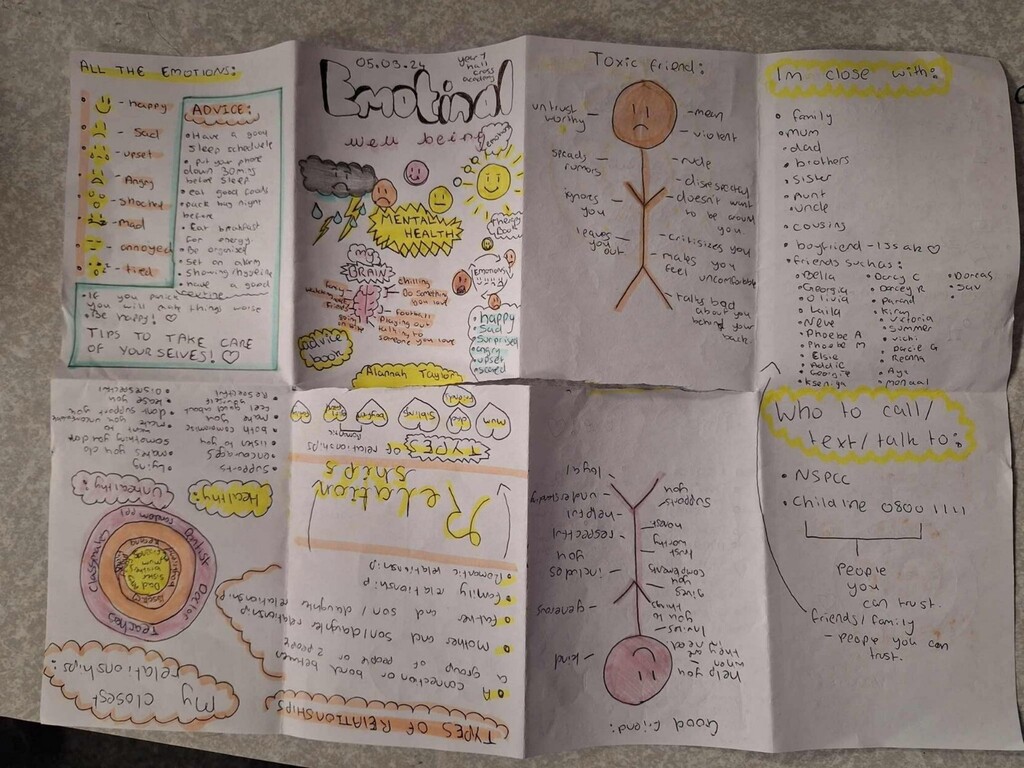 ALL THE EMOTIONS:
- happy
- sad
- upset
- Angry
- shocked
- mad
- annoyed
- tied
ADVICE:
• Have a good
sleep schedule
• put your phone
down 30m
before sleep
• eat good foods
• pack bag night
before
• Eat breakfast
for energy
• Be organised
• set an alarm
• have a good
• If you
you will make things worse
• Be happy! ♡
TIPS TO TAKE CARE
OF YOURSELVES! ♡
05.03.24
year 7
hall
cross
academy
Emotinal
well being
MENTAL
HEALTH
my
BRAIN
chilling
Do something
you love
Football
Playing out
someone you love
advice
book
EMOTIONS
happy
sad
surprised
angry
upset
scared
Alannah Taylor
Toxic friend:
untrust
worthy
spreads
rumors
ignores
you
leaves
you
out
- mean
- violent
- rude
- disrespectful
- doesn't want
to be around
you
- critisizes you
- makes you
feel uncomfortable
- talks bad
about you
behind your
back
Im close with:
• family
• mum
• dad
• brothers
• sister
• Aunt
• uncle
• cousins
• boyfriend - Issak ♡
• friends such as:
• Bella
• Georgia
• Olivia
• Laila
• Neve
• Phoebe A
• Phoebe M
• Elsie
• Addie
• Georgie
• Kseniya
• Darcy C
• Darcey R
• Kiray
• Victoria
• Summer
• Vichi
• Darcie G
• Reanna
• Aya
• Dorcas
Who to call/
text/talk to:
• NSPCC
• Childline 0800 1111
People
you
can trust.
friends/family
- people you can
trust.
Good friend:
- kind
- generous
- includes
you
- respectful
- helpful
- understanding
- loyal
help you
when
they need
Invites
you to
things
gives
you
compliments
trust
worthy
honest
supports
you
TYPES OF RELATIONSHIPS
• A connection or bond between
a group of people or 2 people
• Mother and son/daughter relationship
• Father and son/daughter relationship
• Family relationship
• Romantic relationship
Relation
ships
TYPE of relationships
mum
dad
sibling
boyfriend
Romantic
My closest
relationships
Teachers
Doctor
Dentist
Classmates
Healthy:
• supports
• encourages
• listen to you
• both communicate
• make you
feel good about
yourself
• Respectful
Unhealthy:
• lying
• makes you do
something you dont
want to
• dont support you
• Disrespectful